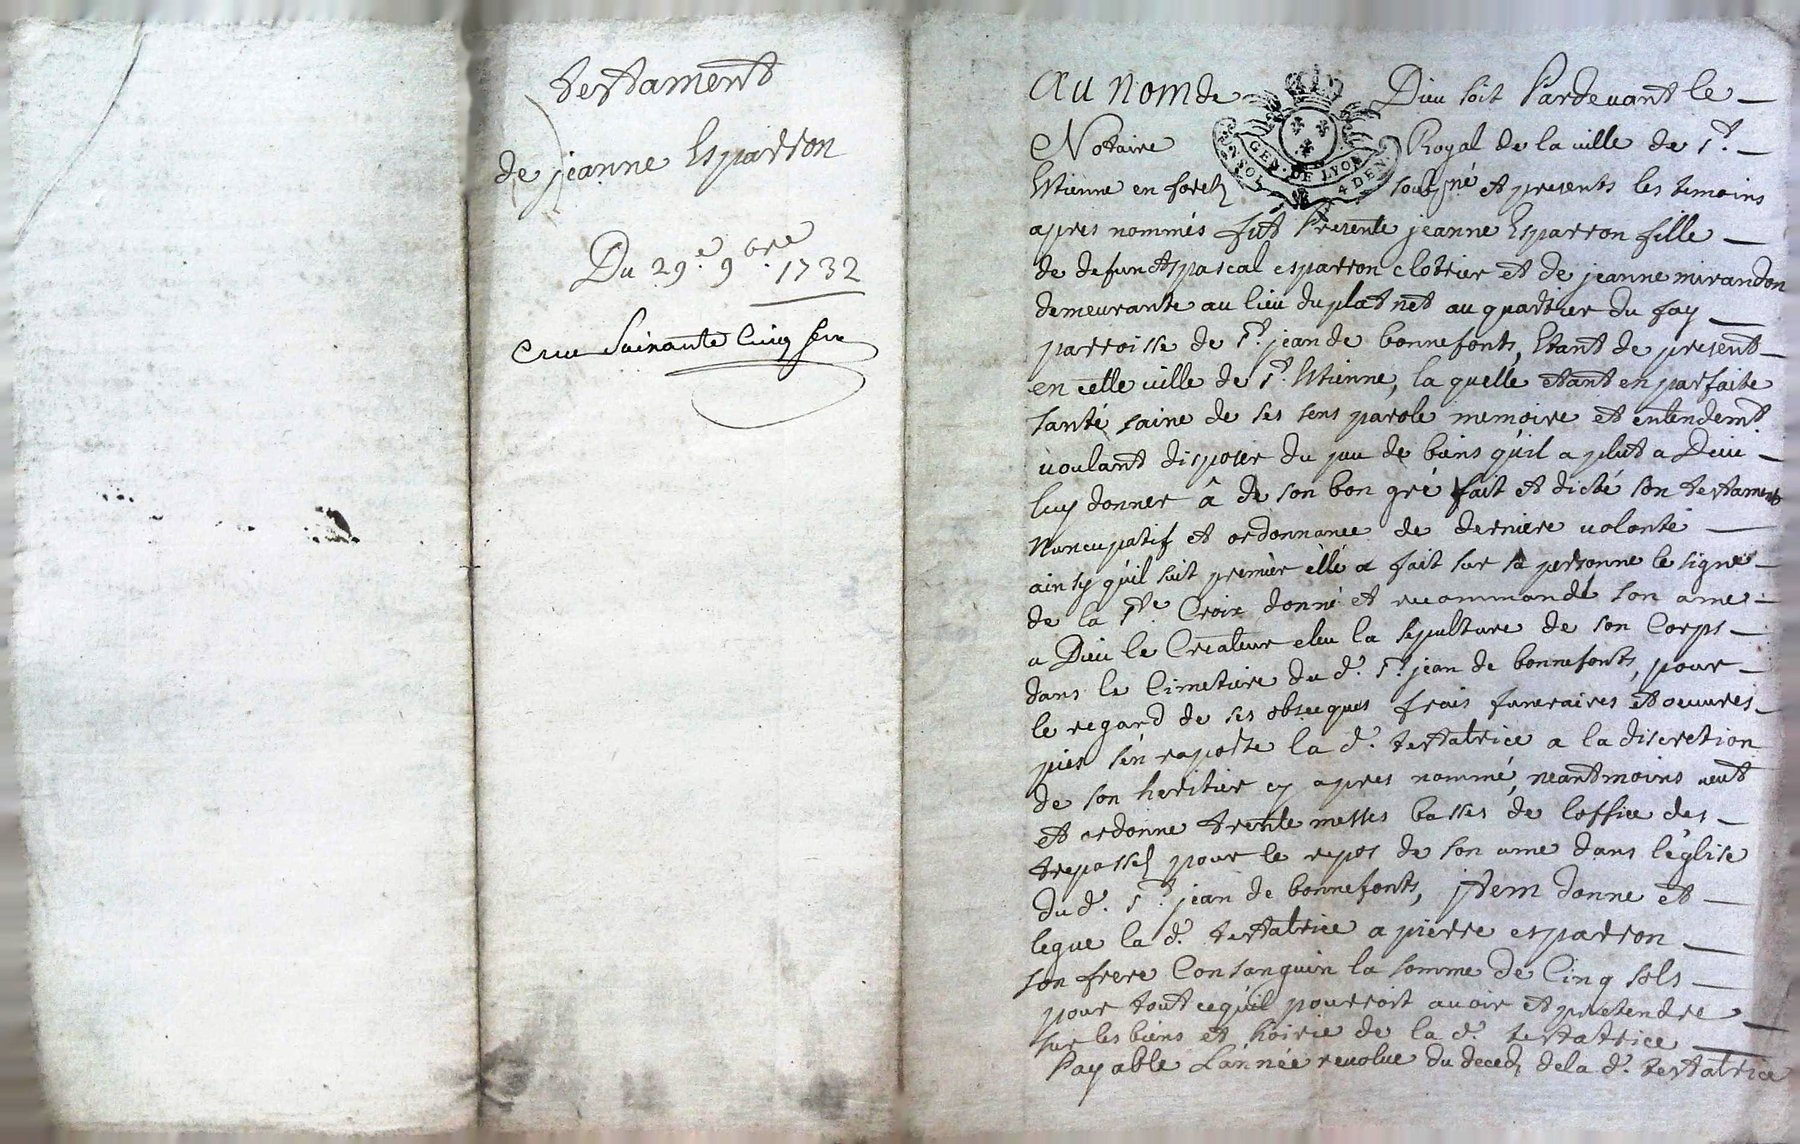 testament
de jeanne Esparron
Du 29e. 9bre. 1732
Au nom de Dieu soit Pardevant le
Notaire Royal de la ville de St.
GEN. DE LYON
2 SOLS 4 DEN.
Etienne en foretz soubsné et presents les temoins
apres nommés fut Presente jeanne Esparron fille
de defunct pascal esparron clottier et de jeanne mirandon
demeurante au lieu du plat net au quartier du fay
parroisse de St. jean de bonnefonts, Etant de present
en cette ville de St. Etienne, la quelle etant en parfaite
santé saine de ses sens parole memoire et entendemt.
voulant disposer du peu de biens qu'il a plut a Dieu
luy donner â de son bon gré fait et dicté son testament
Nuncupatif et ordonnance de derniere volonté
ainsy qu'il suit premier ellé a fait sur sa personne le signe
de la Ste. Croix donné et recommandé son ame
a Dieu le Createur eleu la sepulture de son Corps
dans le Cimetiere du d. St. jean de bonnefonts, pour
le regard de ses obseques frais funeraires et oeuvres
pies s'en raporte la d. testatrice a la discretion
de son heritier cy apres nommé, neantmoins veut
et ordonne trente messes basses de l'office des
trepassez pour le repos de son ame dans l'eglise
du d. St. jean de bonnefonts, jtem donne et
legue la d. testatrice a pierre esparron
son frere Consanguin la somme de Cinq sols
pour tout ce qu'il pourroit avoir et pretendre
sur les biens et hoirie de la d. testatrice
Payable L'année revolue du decedz de la d. testatrice